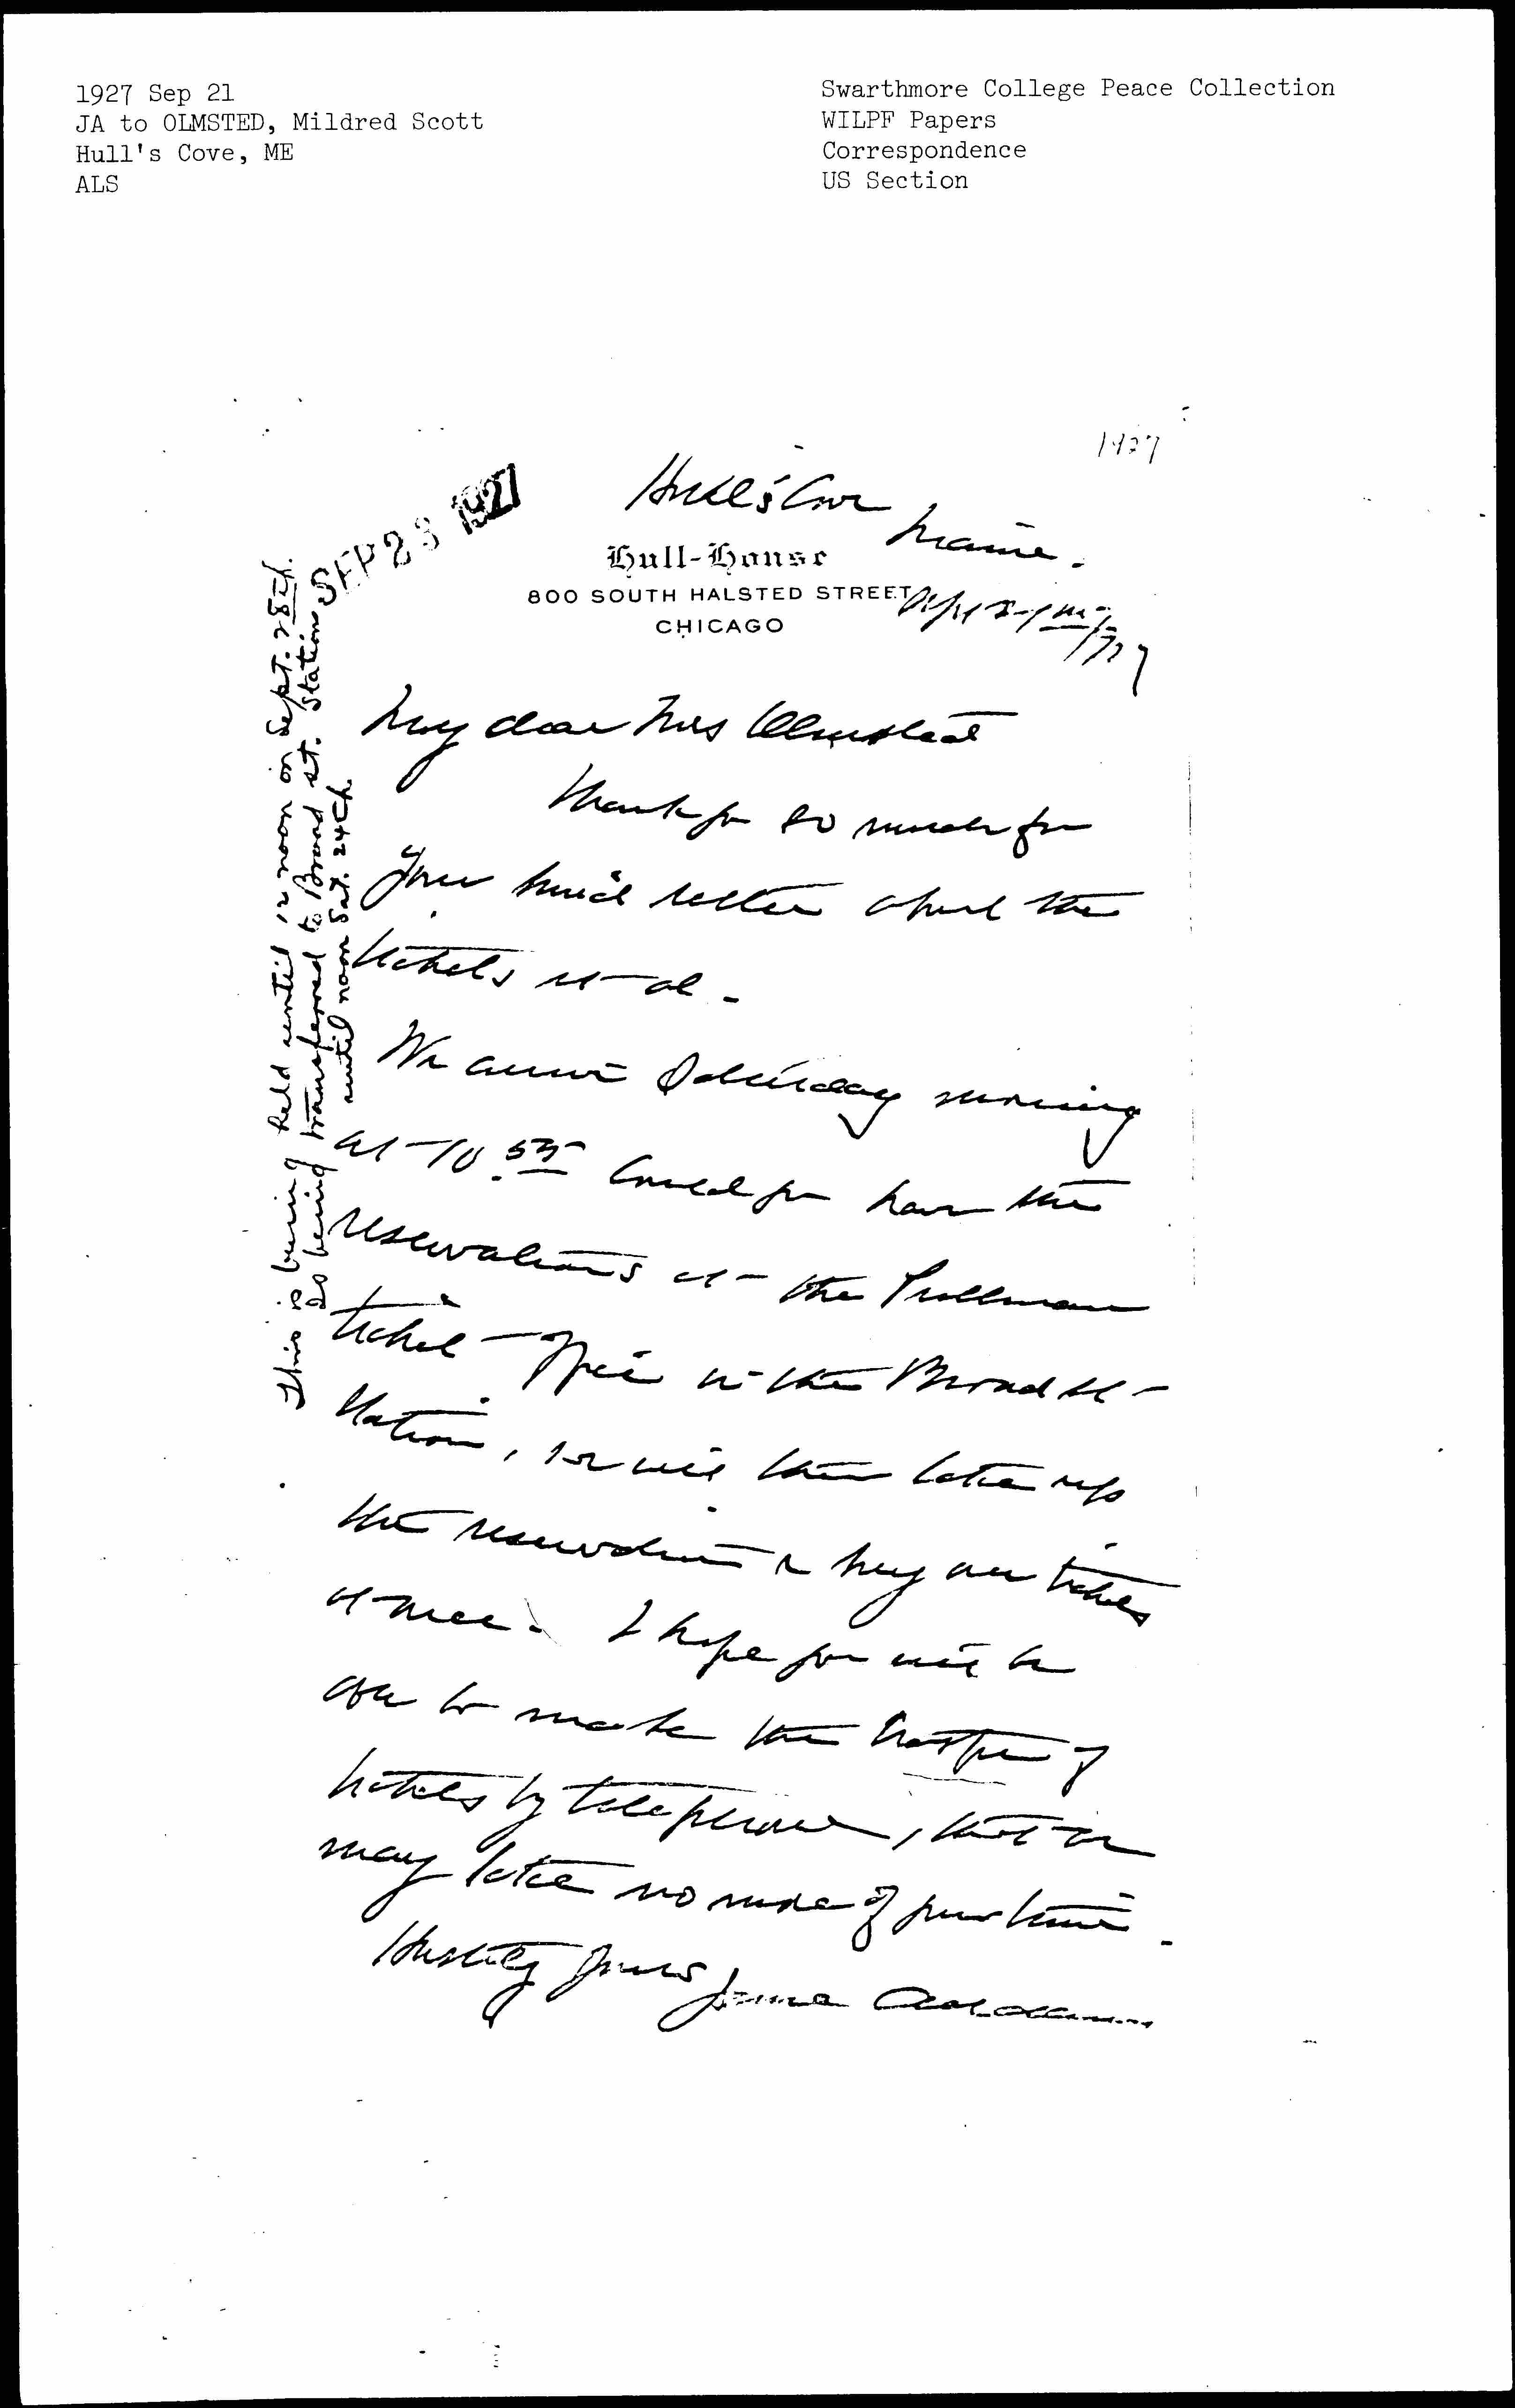 1927 Sep 21
JA to OLMSTED, Mildred Scott
Hull's Cove, ME
ALS
Swarthmore College Peace Collection
WILPF Papers
Correspondence
US Section
1927
SEP 23 1927
Hull's Cove
Maine.
Hull-House
800 SOUTH HALSTED STREET
CHICAGO
Sept 21st/27
My dear Mrs Olmstead
Thank you so much for
your kind letter about the
tickets et al.
We arrive Saturday morning
at 10.55 Could you have the
reservations at the Pullman
ticket office in the Broad St
Station, we will then take up
the reservations & buy our tickets
at once. I hope you will be
able to make the transfer of
tickets by telephone, that it
may take no more of your time.
Hastily yours Jane Addams
This is being held until 12 noon on Sept. 28th.
Is being transferred to Broad St. Station
until noon Sat. 24th